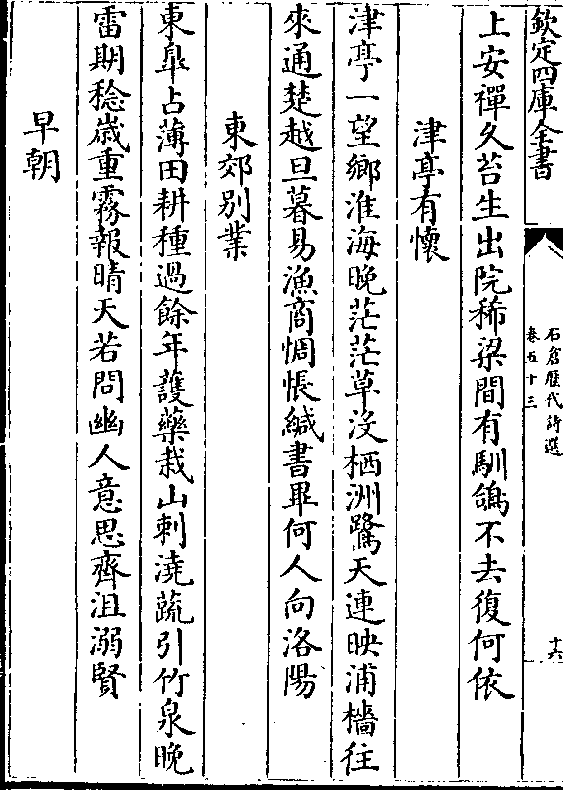 欽定四庫全書
石倉歷代詩選
卷五十三
十六
上安禪久苔生出院稀梁間有馴鴿不去復何依
津亭有懷
津亭一望鄉淮海晚茫茫草沒栖洲鷺天連映浦檣往
來通楚越旦暮易漁商惆悵緘書畢何人向洛陽
東郊别業
東臯占薄田耕種過餘年護藥栽山刺澆蔬引竹泉晚
雷期稔嵗重霧報晴天若問幽人意思齊沮溺賢
早朝